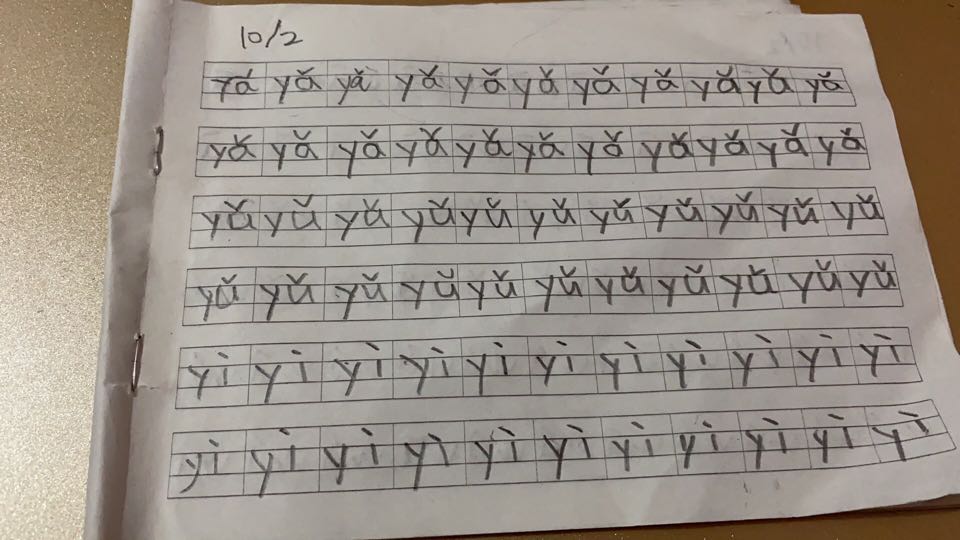 10/2
yá yǎ yǎ yǎ yǎ yǎ yǎ yǎ yǎ yǎ yǎ
yǎ yǎ yǎ yǎ yǎ yǎ yǎ yǎ yǎ yǎ yǎ
yǔ yǔ yǔ yǔ yǔ yǔ yǔ yǔ yǔ yǔ yǔ
yǔ yǔ yǔ yǔ yǔ yǔ yǔ yǔ yǔ yǔ yǔ
yì yì yì yì yì yì yì yì yì yì yì
yì yì yì yì yì yì yì yì yì yì yì